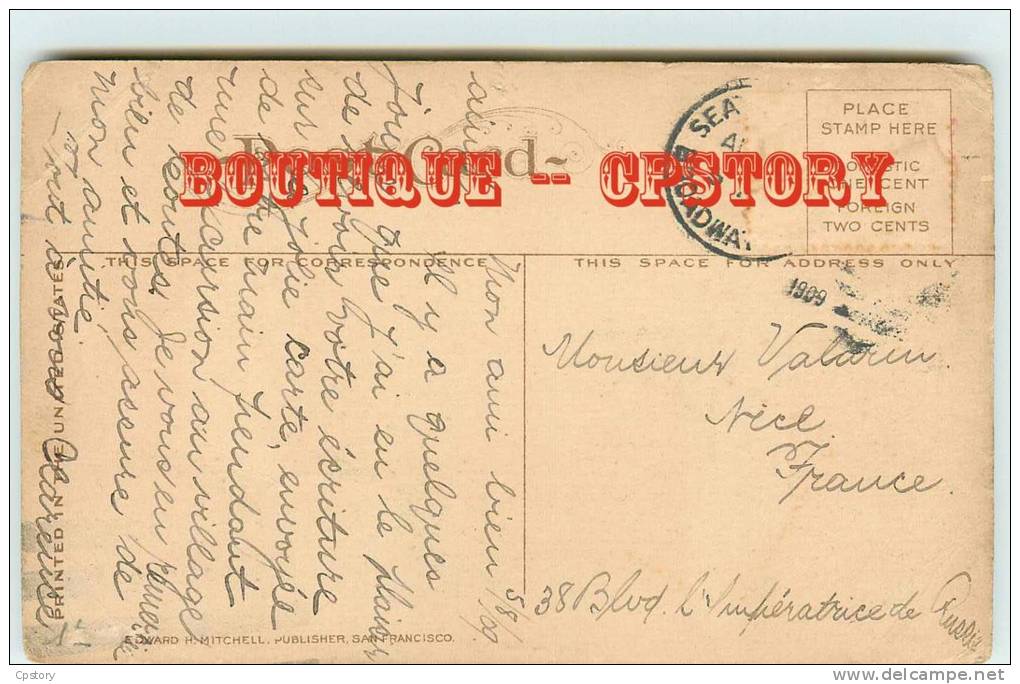 Post Card
BOUTIQUE -- CPSTORY
PLACE
STAMP HERE
DOMESTIC
ONE CENT
FOREIGN
TWO CENTS
SEA
BROADWAY
1909
THIS SPACE FOR CORRESPONDENCE
THIS SPACE FOR ADDRESS ONLY
Mon ami bien
aimé
Il y a quelques
jours que j'ai eu le plaisir
de revoir votre écriture
sur la jolie carte, envoyée
de votre main pendant
une excursion au village
de Contes. Je vous en remercie
bien et vous assure de
mon amitié.
Tout à vous
Monsieur Valarin
Nice
France.
38 Blvd. l'Impératrice de Russie
PRINTED IN THE UNITED STATES
EDWARD H. MITCHELL, PUBLISHER, SAN FRANCISCO.
Cpstory
www.delcampe.net